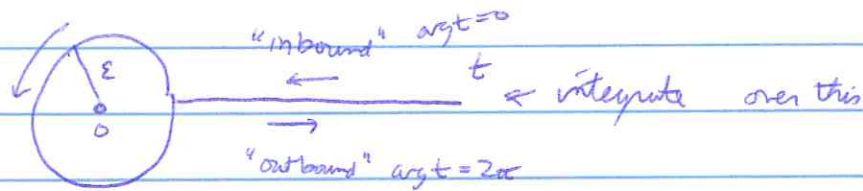 "inbound" arg t=0
ε t
← integrate over this
0
"outbound" arg t = 2π